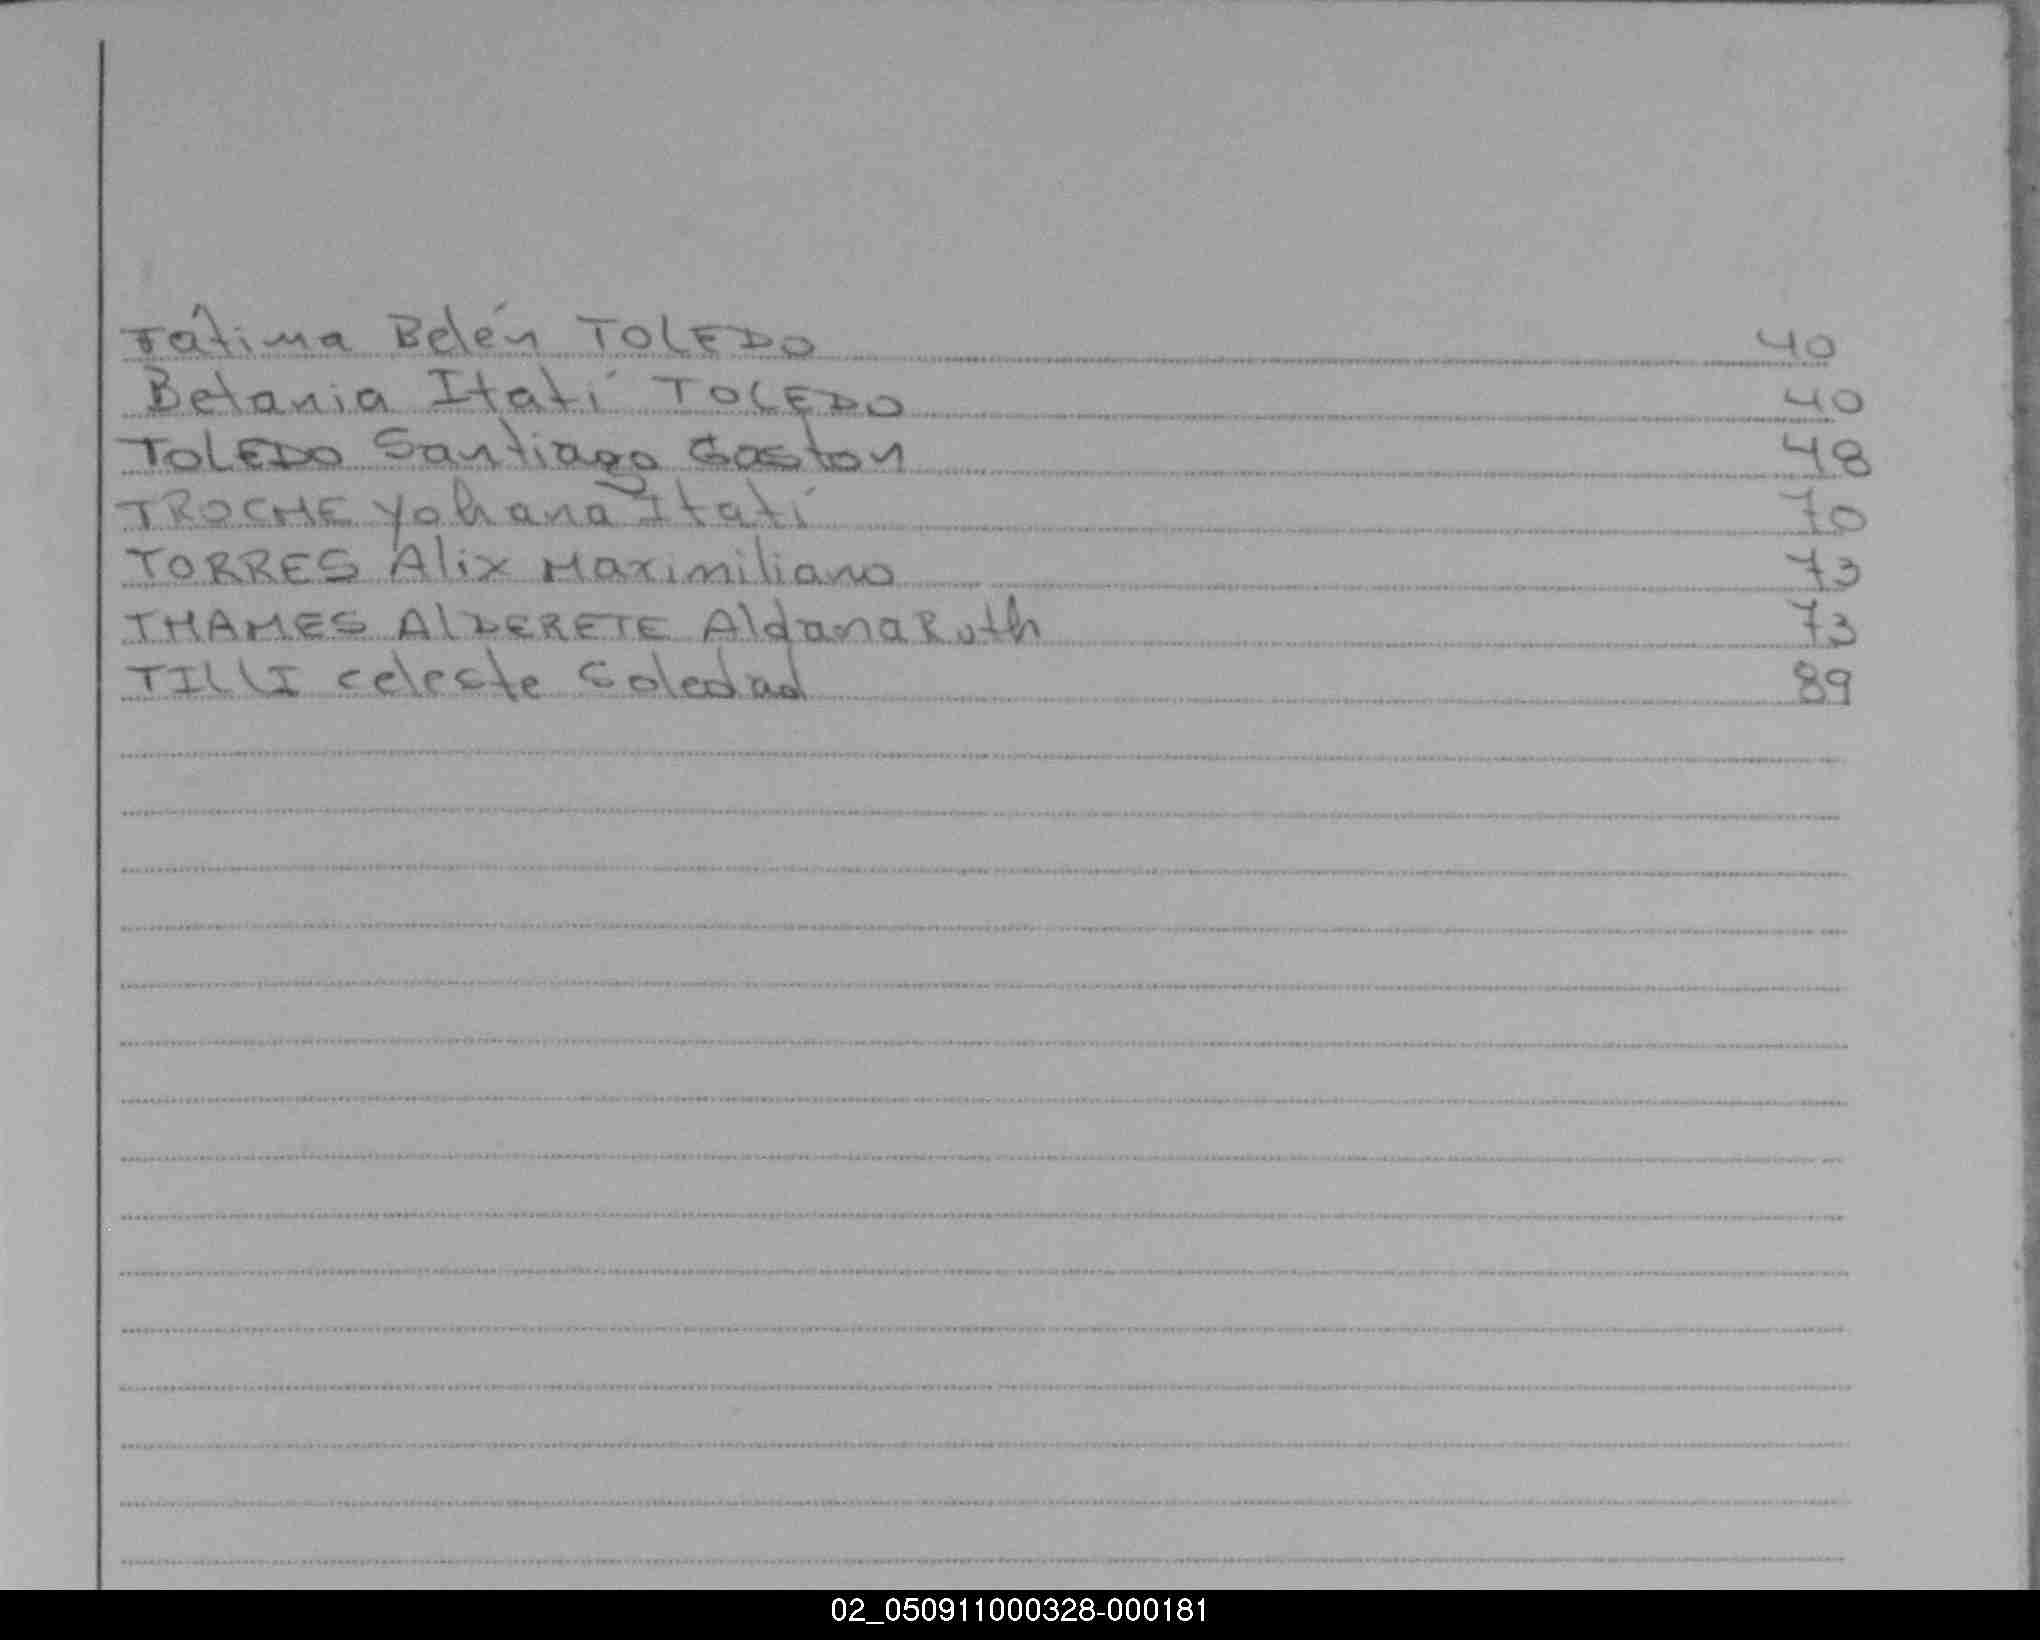 Fátima Belén TOLEDO 40
Betania Itatí TOLEDO 40
TOLEDO Santiago Gaston 48
TROCHE Yohana Itatí 70
TORRES Alix Maximiliano 73
THAMES AlDERETE Aldana Ruth 73
TILLI celeste Soledad 89
02_050911000328-000181